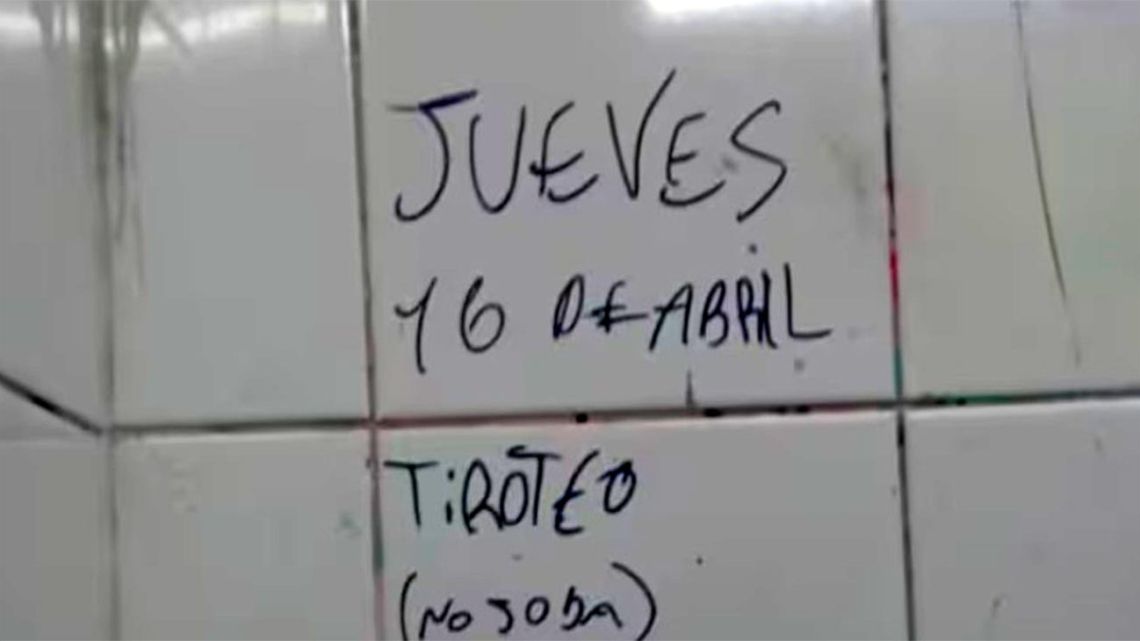 JUEVES
16 DE ABRIL
TiROTEO
(NO JODA)